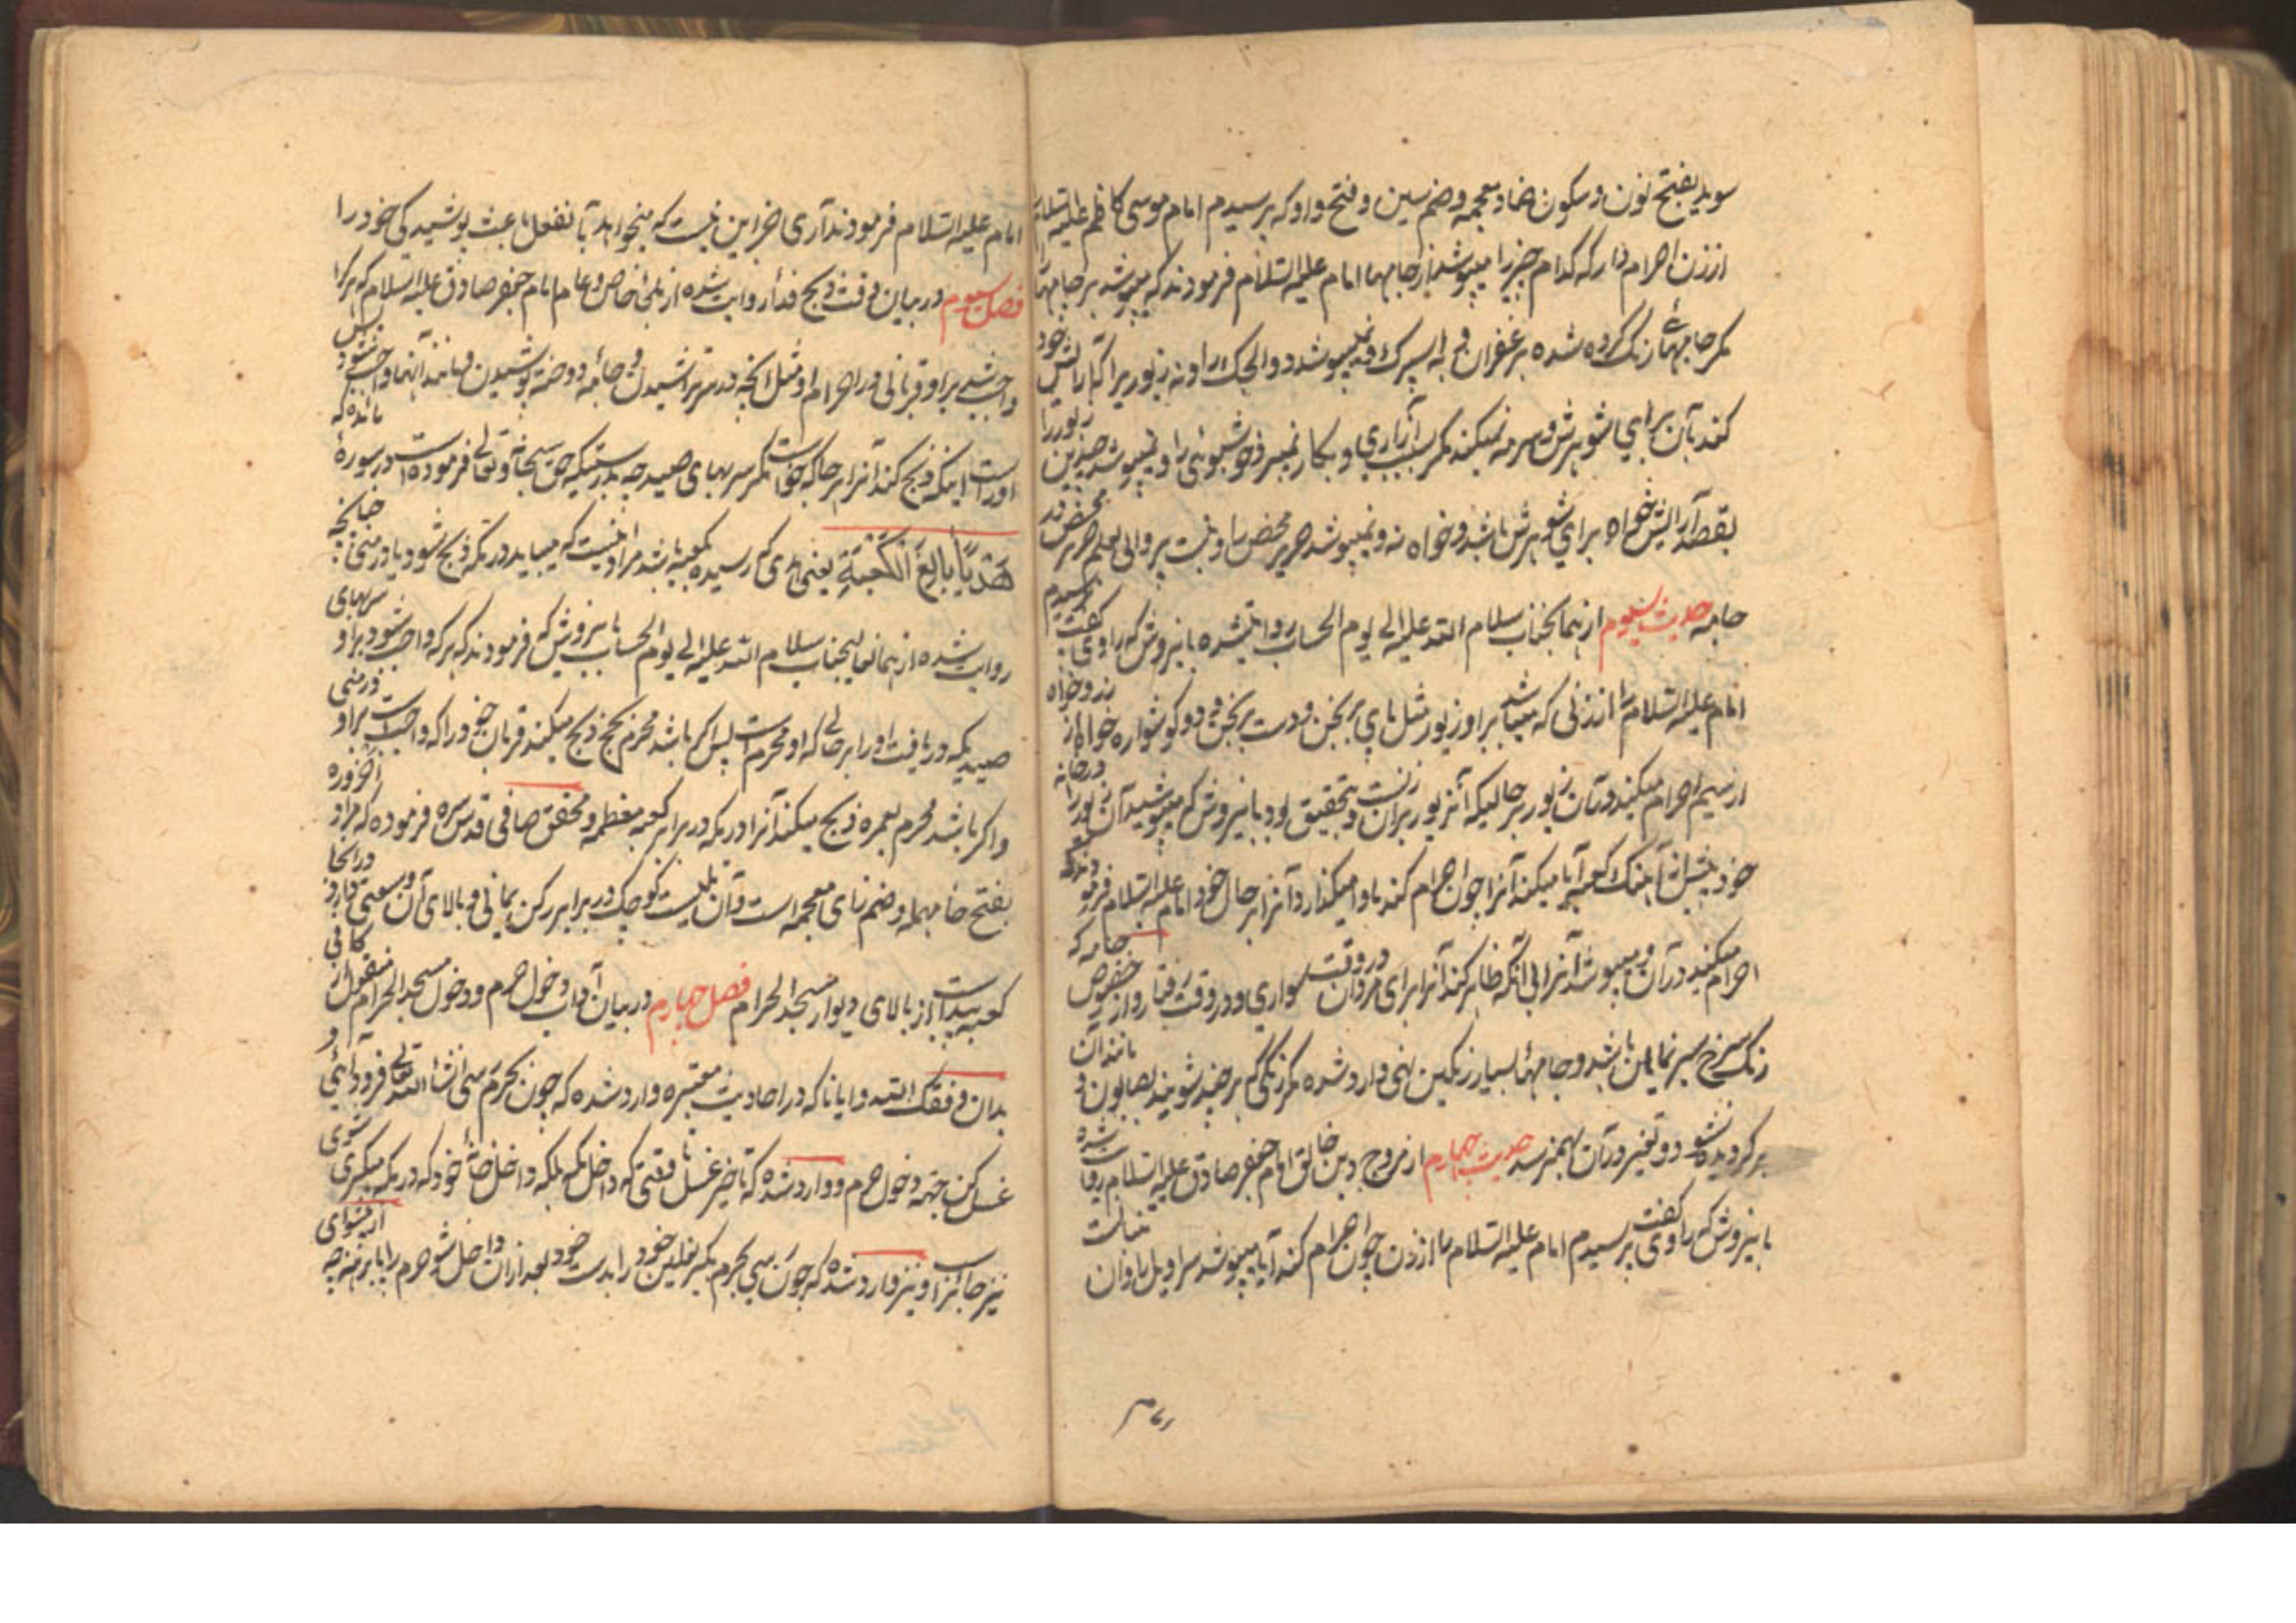 سوید بفتح نون و سکون ضاد معجمه و ضم سین و فتح واو که پرسیدم امام موسی کاظم علیه السلام
از زن احرام دار که کدام چیز را میپوشد از جامها امام علیه السلام فرمودند که میپوشد هر جامها
مگر جامهای رنگ کرده شده بزعفران و به اسپرک و نمیپوشد دو الچک را و نه زیور یرا که آرایش
کند بآن برای شوهرش و سرمه نمیکند مگر بسبب آزاری و بکار نمیبرد خوشبوئی را و نمیپوشد چنین زیور را
بقصد آرایش خواه برای شوهرش باشد و خواه نه و نمیپوشد حریر محض را و نیست پروائی بعلم حریر محض در
جامه حدیث سیوم از همانجناب سلام الله علیه الی یوم الحساب روایتشده باینروش که راوی گفت پرسیدم
امام علیه السلام را از زنی که میباشد بر او زیور مثل پای برنجن و دست برنجن و دو گوشواره خواه از زر و خواه
از سیم احرام میکند در آن زیور بر حالیکه آنزیور بر آن زنست و بتحقیق بود باینروش که میپوشید آن زیور را در خانه
خود پیش از آهنگ کعبه آیا میکند آنرا چون احرام کند یا وا میگذارد آنرا بر حال خود امام علیه السلام فرمودند که
احرام میکند در آن و میپوشد آنرا بی آنکه ظاهر کند آنرا برای مردان در وقت سواری و در وقت رفتار و از جامه که
رنگ سرخ سیر نمایان باشد و جامهای بسیار رنگین نهی وارد شده مگر رنگی که هر چند شویند بصابون و مانند آن
برگردیده نشود و تغییر در آن بهم نرسد حدیث چهارم از مروج دین خالق امام جعفر صادق علیه السلام روایت شده
باینروش که راوی گفت پرسیدم امام علیه السلام را از زن چون احرام کند آیا میپوشد سراویل را و آن
امام علیه السلام فرمودند آری اخر این نیست که میخواهد بآنفعل باعث پوشیدگی خود را
فصل سیوم در بیان وقت ذبح فدا روایت شده از ملجأ خاص و عام امام جعفر صادق علیه السلام که هر کرا
واجب شد بر او قربانی در احرام او مثل انچه در سر تراشیدن و جامه دوخته پوشیدن و مانند آنها واجب میشود پس
او راست اینکه ذبح کند آنرا هر جا که خواست مگر سربهای صید چه بدرستیکه حق سبحانه و تعالی فرموده است در سوره مائده که
هَدْيًا بَالِغَ الْكَعْبَةِ یعنی هدی که رسیده بکعبه باشد مراد اینست که میباید در مکه ذبح شود یا در منی چنانچه
روایت شده از همانعالیجناب سلام الله علیه الی یوم الحساب باینروش که فرمودند که هر که واجب شود بر او سربهای
صیدیکه دریافت او را بر حالی که او محرم است پس اگر باشد محرم بحج ذبح میکند قربان خود را که واجب است بر او در منی
و اگر باشد محرم بعمره ذبح میکند آنرا در مکه در برابر کعبه معظمه و محقق صافی قدس سره فرموده که مراد از حزوره
بفتح حا مهمله و ضم زای معجمه است و آن تلیست کوچک در برابر رکن یمانی و بالای آن وسعتی دارد در آنجا
کعبه پیداست از بالای دیوار مسجد الحرام فصل چهارم در بیان آداب دخول حرم و دخول مسجد الحرام منقول از کافی
بدان وفقک الله و ایانا که در احادیث معتبره وارد شده که چون بحرم رسی انشاء الله تعالی فرود آئی و
غسل کن جهة دخول حرم و وارد شده که تاخیر غسل تا وقتی که داخل مکه بلکه داخل خانه خود که در مکه میگیری شوی
نیز جایز است و نیز وارد شده که چون رسی بحرم بگیر نعلین خود را بدست خود بعد از آن داخل شو حرم را پا برهنه چه